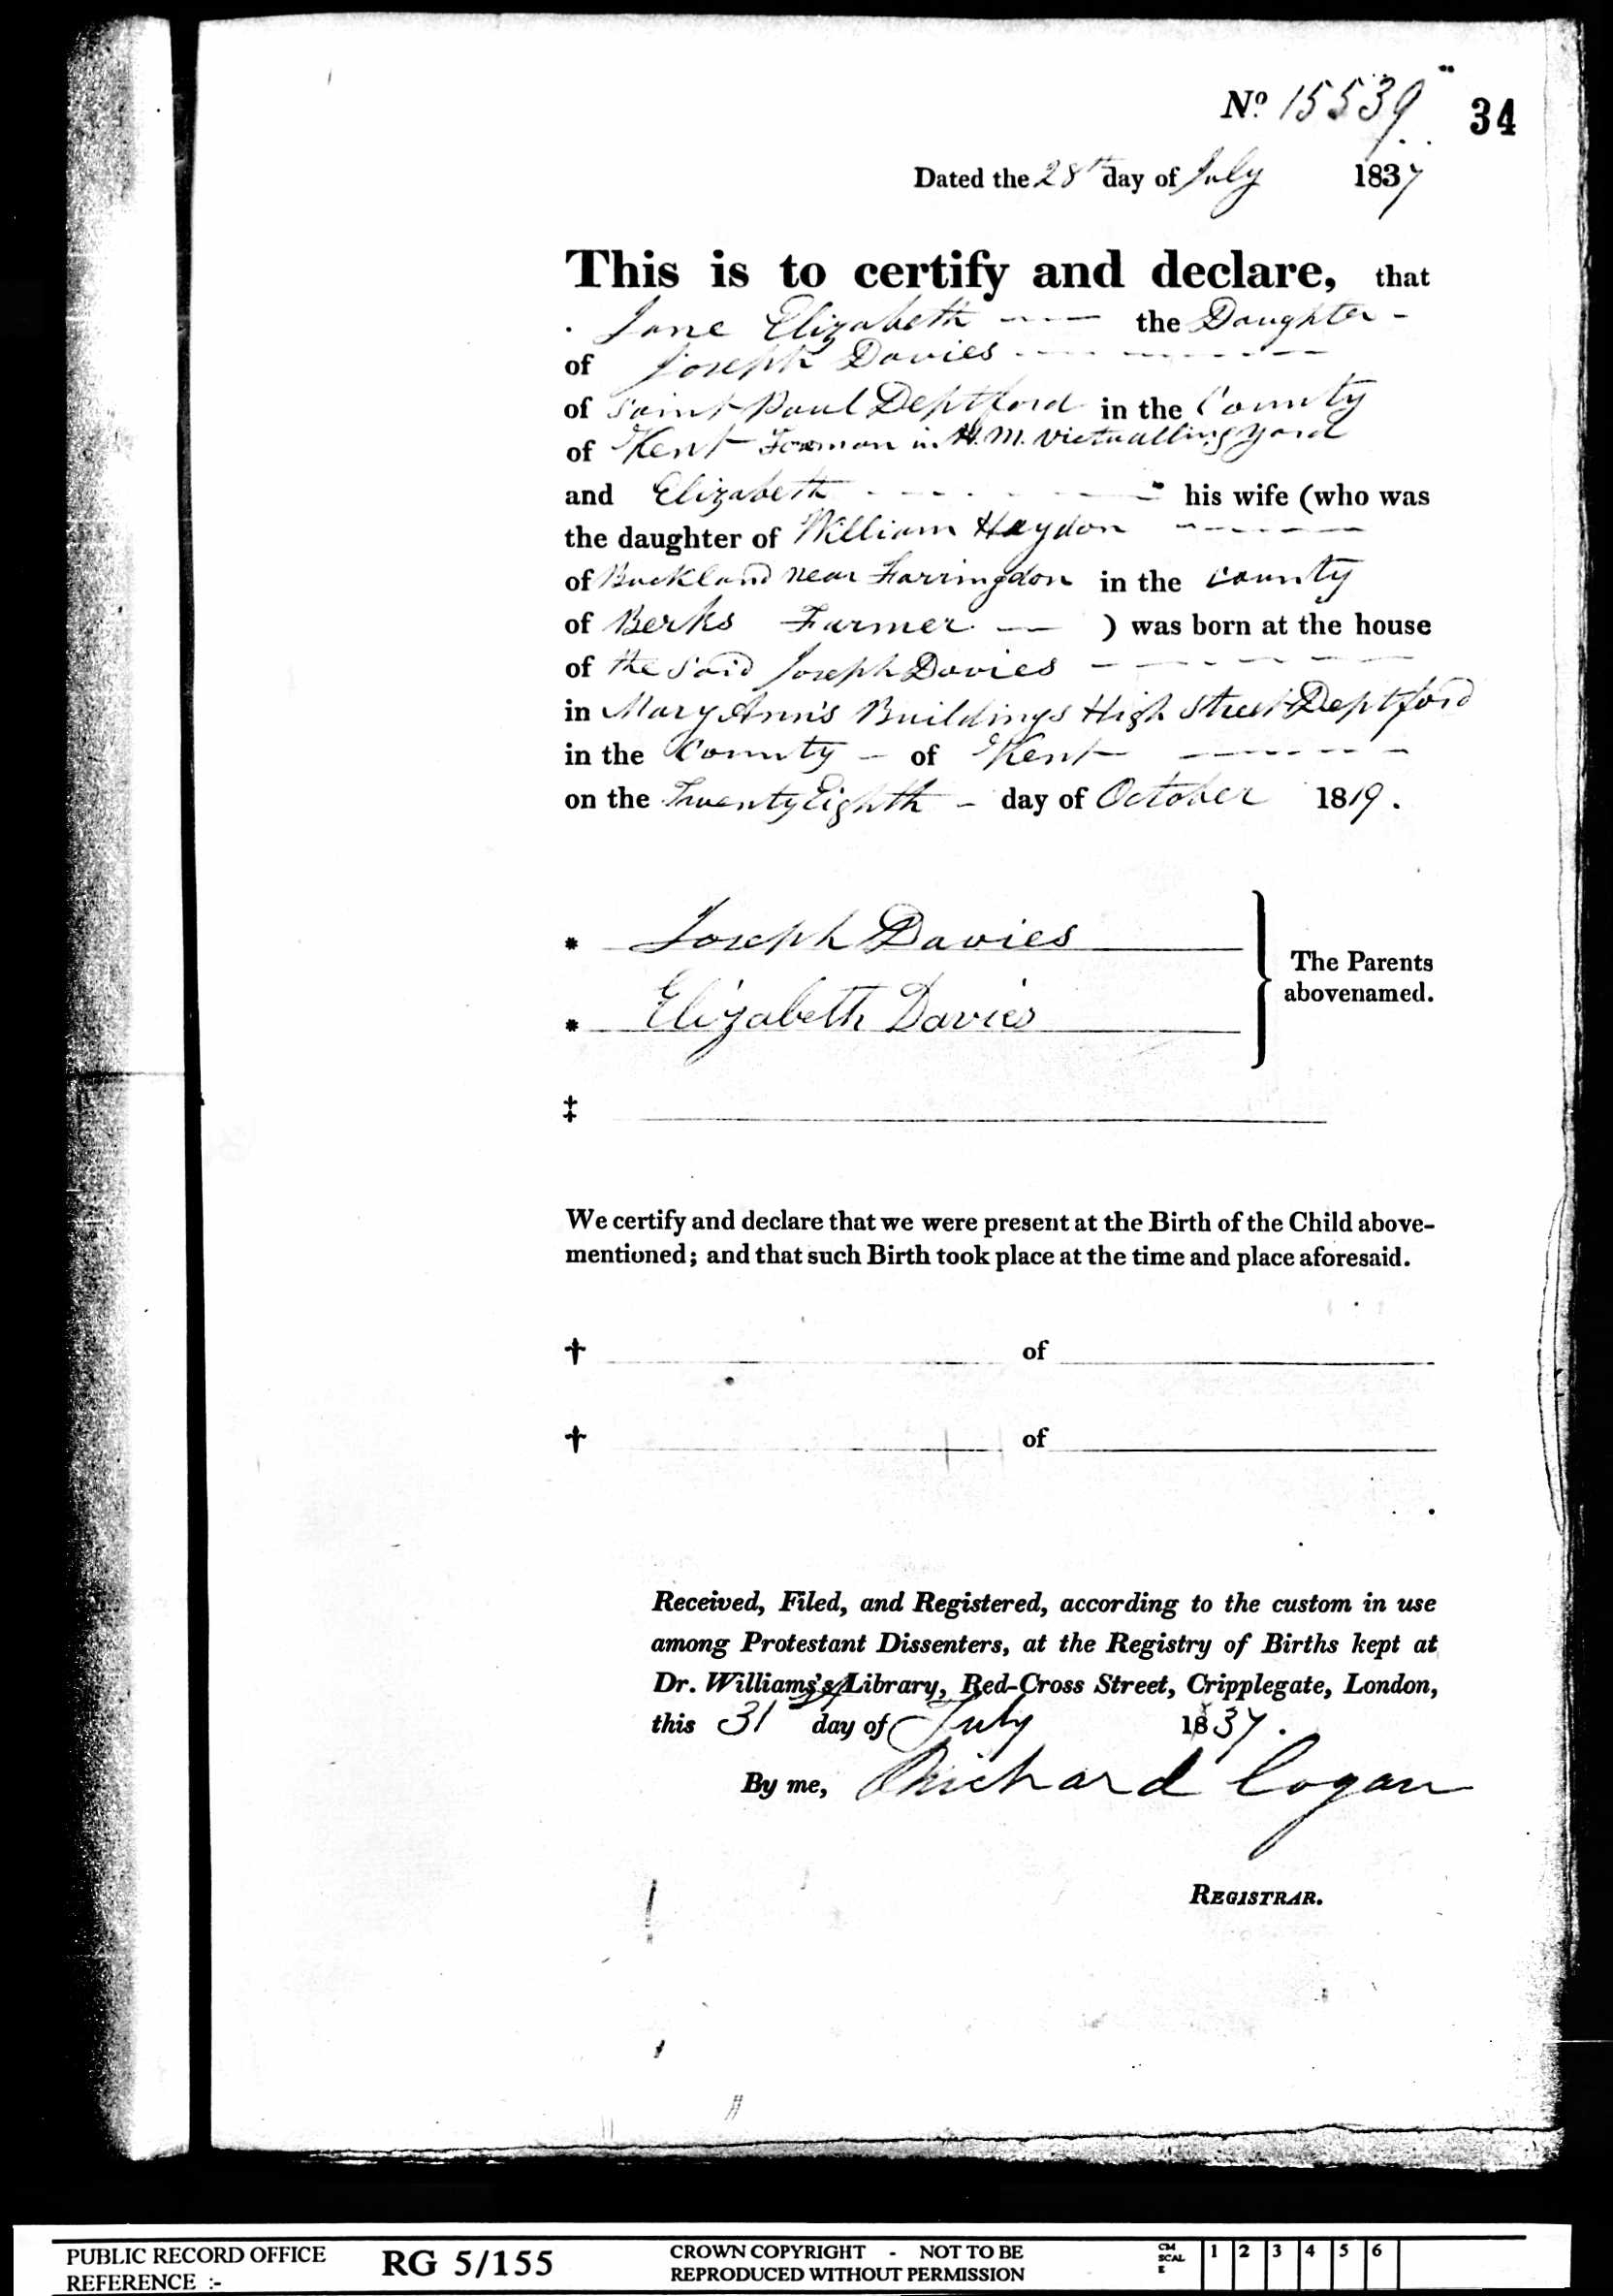 Nº 15539
34
Dated the 28th day of July 1837
This is to certify and declare, that
Jane Elizabeth the Daughter
of Joseph Davies
of Saint Paul Deptford in the County
of Kent Foreman in H.M. Victualling Yard
and Elizabeth his wife (who was
the daughter of William Haydon
of Buckland near Farringdon in the County
of Berks Farmer ) was born at the house
of the said Joseph Davies
in Mary Ann's Buildings High Street Deptford
in the County of Kent
on the Twenty Eighth day of October 1819.
* Joseph Davies
* Elizabeth Davies
The Parents
abovenamed.
‡
We certify and declare that we were present at the Birth of the Child above-
mentioned; and that such Birth took place at the time and place aforesaid.
† of
† of
Received, Filed, and Registered, according to the custom in use
among Protestant Dissenters, at the Registry of Births kept at
Dr. Williams's Library, Red-Cross Street, Cripplegate, London,
this 31st day of July 1837.
By me, Richard Cogan
REGISTRAR.
PUBLIC RECORD OFFICE
REFERENCE :-
RG 5/155
CROWN COPYRIGHT - NOT TO BE
REPRODUCED WITHOUT PERMISSION
CM
SCAL
E
1 2 3 4 5 6